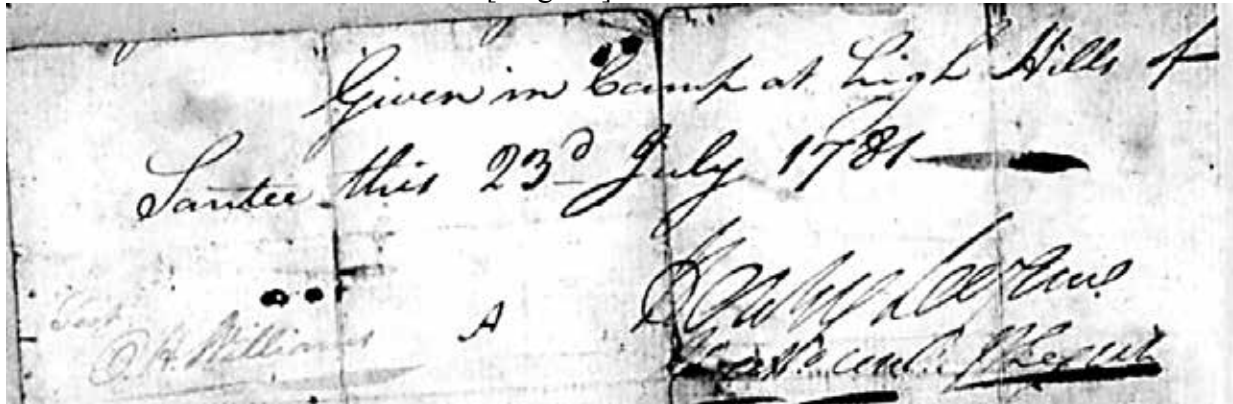 Given in Camp at high Hills of
Santee this 23d July 1781
Test
O. H. Williams
A
Henry Lee Jun